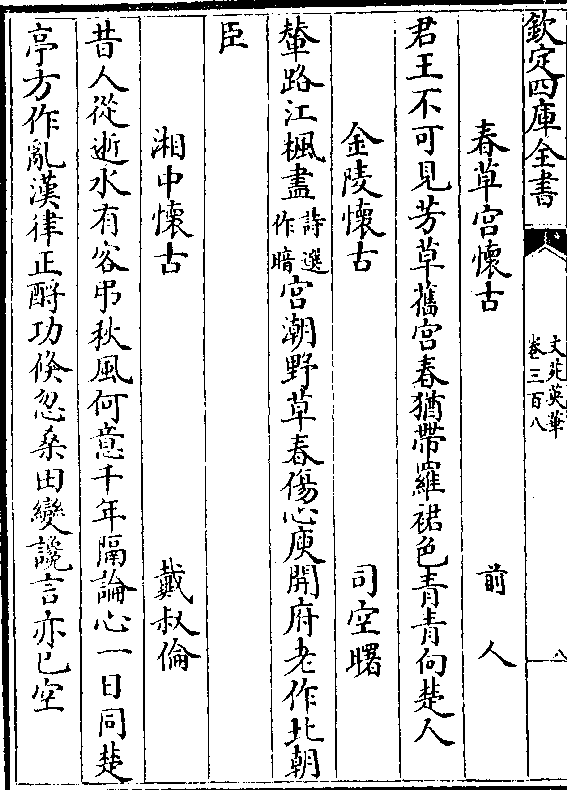 欽定四庫全書
文苑英華
卷三百八
八
春草宫懷古
前人
君王不可見芳草舊宫春猶帶羅裙色青青向楚人
金陵懷古
司空曙
輦路江楓盡詩選作暗宫潮野草春傷心庾開府老作北朝
臣
湘中懷古
戴叔倫
昔人從逝水有客弔秋風何意千年隔論心一日同楚
亭方作亂漢律正酧功倐忽桑田變讒言亦已空